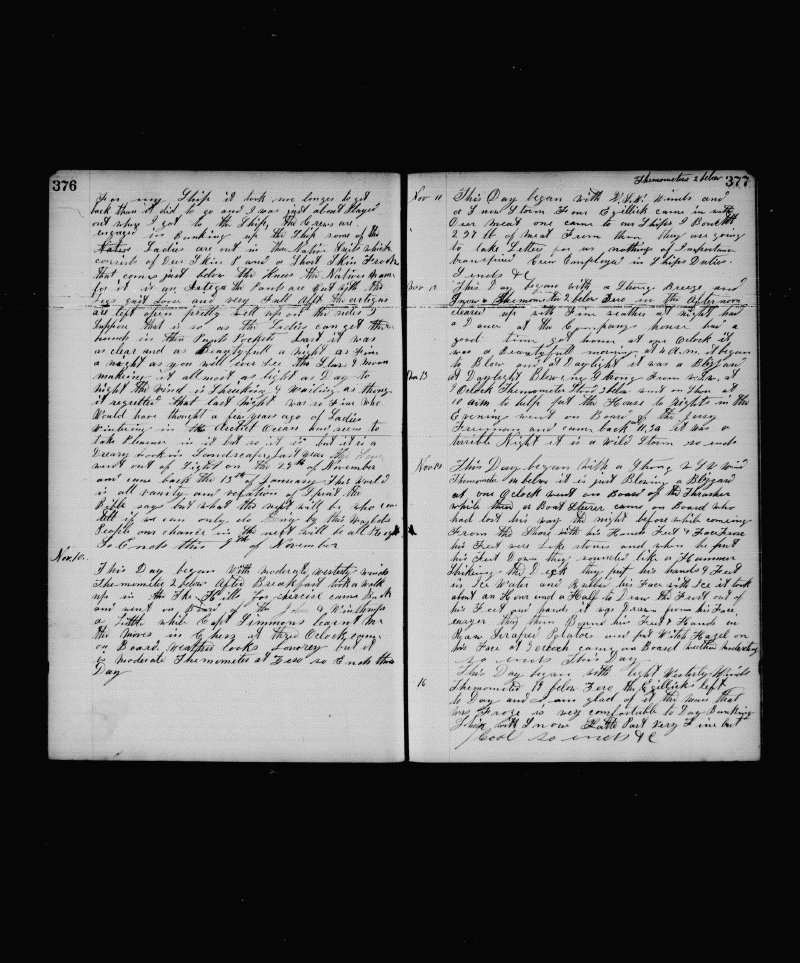 376
For my Ship it took me longer to get
back than it did to go and I was just about Played
out when I got to the Ship, the Crews are
engaged in Banking up the Ship some of the
Ladies are out in their Native Suits which
consist of Deer Skin and a Short Skin Frock
that comes just below the Knees the Natives name
for it is an Artega the Pants are
legs and very Full Aft the artigas
are left open pretty well up on the sides I
suppose that is so as the Ladies can get their
hands in their Pants Pockets Last it was
as clear and as Beautyfull a night as Fine
a night as you will ever see the Stars & Moon
making it all most as light as Day to
night the wind is Shrieking & Wailing as though
it regretted that last night was so Fine Who
Would have thought a few years ago of Ladies
Wintering in the Arctic Ocean and seem to
take Pleasure in it but so it is but it is a
Dreary looking Landscape, Last year the
went out of Sight on the 29th of November
and came back the 13th of January This World
is all vanity and vexation of Spirit the
Bible say but what the next will be who can
tell if we can only do by this
People our chance in the next will be all right
So Ends this 9th of November
Nov. 10.
This Day began With moderate westerly winds
Themometer 2 below After Breakfast took a walk
up in the Hill For Exercise came Back
and went on Board of the & Winthrops
a little while Capt Simmons
the moves in Chess at three O clock came
on Board. Weather looks Lowrey but it
is moderate Themometer at Zero so Ends this
Day
Themometer 2 below 377
Nov 11 This Day began with Winds and
a Snow Storm Four Egillick came in with
Deer meat one came to our Ships I Bought
237 lb of meat From them they are going
to take Letters for us nothing of Importance
transpired Crew Employed in Ships Duties.
Ends &C
Nov 12 This Day began with a Strong Breeze and
Snow Themometer 2 below Zero in the Afternoon
cleared up with Fine weather at night had
a Dance at the Company house had a
good time got home at one Oclock it
was a Beautyfull morning at 4 a.m. it began
to Blow and at Daylight it was a Blizzard
Nov 13 at Daylight Blowing Strong From
Oclock Themometer below went on Shore at
10 am to help get the House to rights in the
Evening went on Board of the Jesse
Freeman and came back 11,30 it was a
terrible Night it is a wild Storm so ends
Nov 14 This Day began with a Strong wind
Themometer below it is just Blowing a Blizzard
at one Oclock went on Board of the Thrasher
while there a Boat Sterer came on Board who
had lost his way the night before while comeing
From the Shore with his Hands Feet & Face Froze
his Feet were Like stones and when he put
his Feet Down they sounded like a Hammer
Strikeing the Deck they put his hands & Feet
in Ice Water and Rubbed his Face with Ice it took
about an Hour and a Half to Draw the Frost out of
his Feet and hands it was Drawn from his Face
easyer they then Bound his Feet & Hands in
Raw Scraped Potatoes and put Witch Hazel on
his Face at 5 oclock came on Board weather
so ends This Day
This Day began with light Westerly Winds
16 Themometer 19 below Zero the Egillicks left
to Day and I am glad of it the man that
was Froze is very comfortable to Day Banking
Ship with Snow Latter Part very Fine but
Cool so ends &C